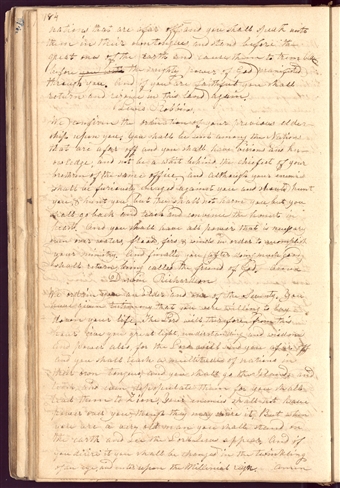 184
nations that are afar off and you shall speak unto
them in their own tongue, and stand before the
great ones of the earth and cause them to tremble
before the mighty power of God manifested
through you, and if you are faithful you shall
return and in this land again.
Robbins
We confirm the ordination of your previous elder
ship upon you, you shall be sent among the Nations
that are afar off and you shall have visions and kn
owledge, and not be a whit behind the chiefest of your
brethren of the same office, and although your enemies
shall be furiously enraged against you and should hunt
you, & hunt you, but they shall not harm you but you
shall go back and and convince the honest in
heart. And you shall have all power that is necessary
over waters, floods, fire & winds in order to accomplish
your ministry. And finally you, after long
shall return, being called the friend of God. Amen
Richardson
We ordain an elder and one of the Seventy, you
that you are willing to
down your life, the Lord will therefore from this
hour give you great light, understanding and wisdom
and power also for the Lord will send you afar off
and you shall teach a multitude of nations in
their own tongue, and you shall go to Islands and
them for you shall
lead them to Zion. Your enemies shall not have
power over you, though they may it. But when
you are a very old man you shall stand on
the earth and see the appear. And if
you desire it you shall be changed in the twinkling
of an eye, and enter upon the Millenial reign. Amen